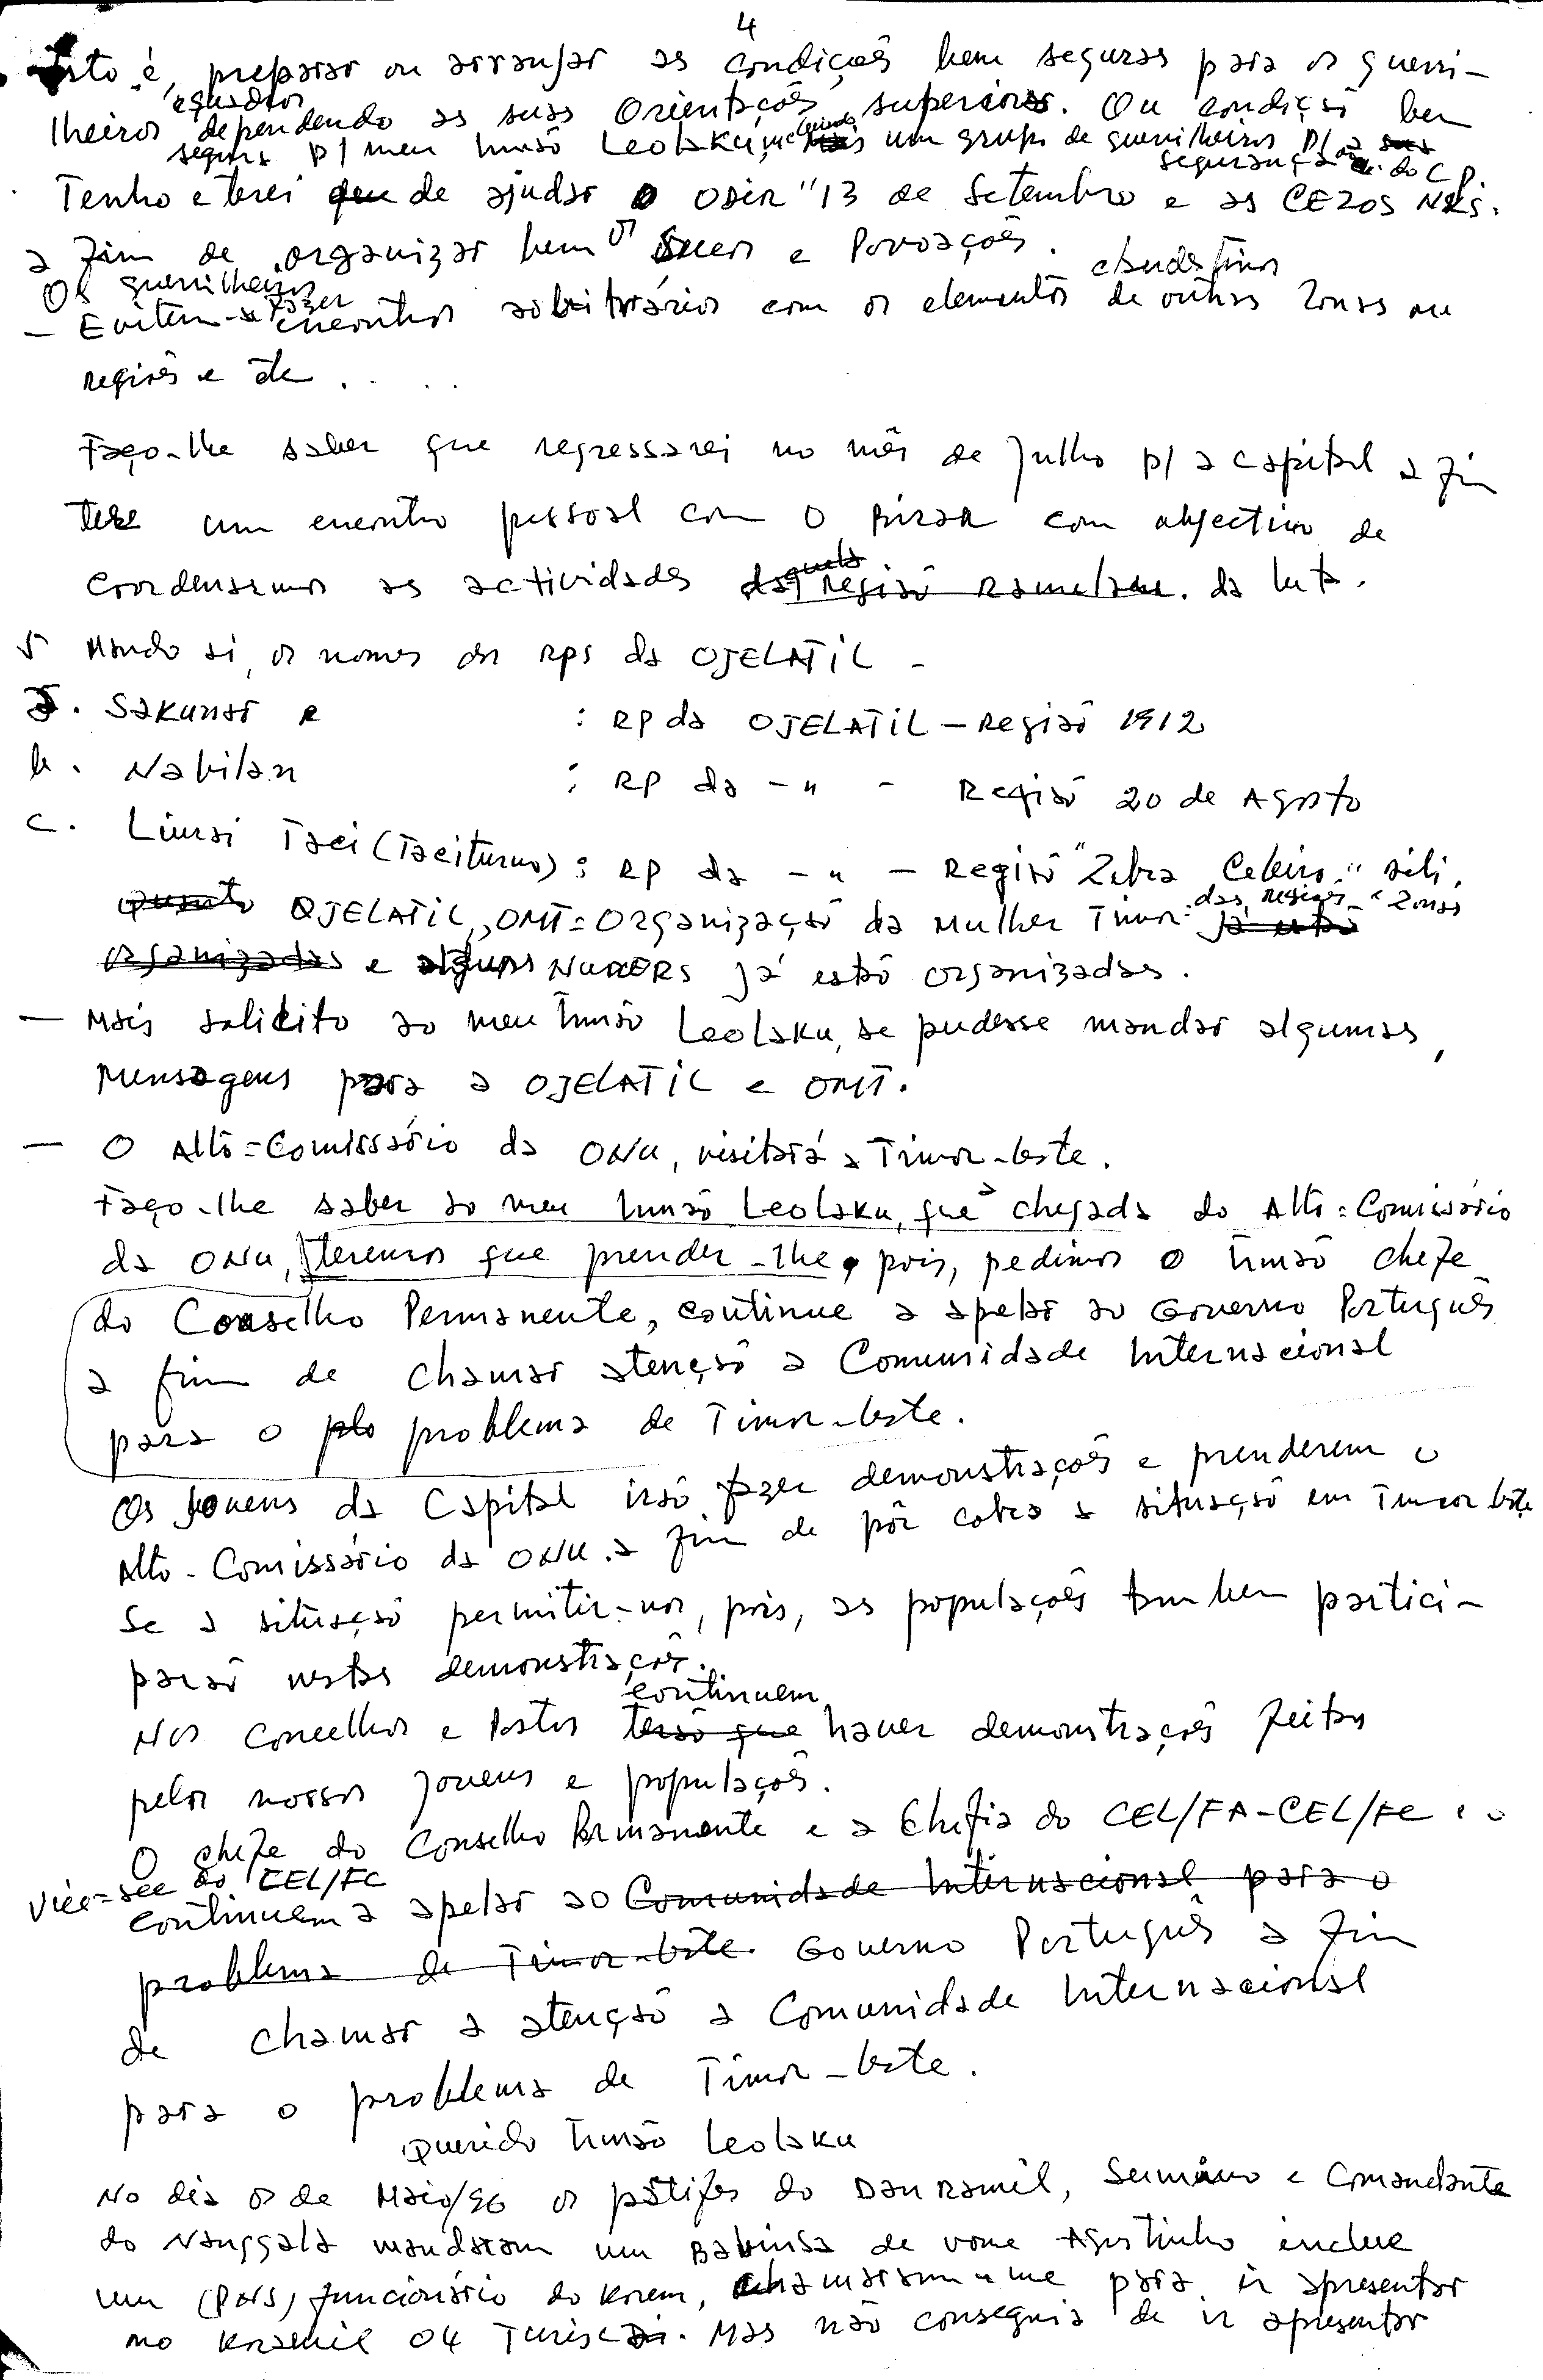 4
Isto é, preparar ou arranjar as condições bem seguras para os guerri-
lheiros esquadror dependendo as suas Orientações superiores. Ou condição bem
segura p/ meu Irmão Leolaku, incluindo um grupo de guerrilheiros p/ a segurança do C.P.
Tenho e terei de ajudar o ODIR "13 de Setembro e as CEZOS NKS.
a fim de organizar bem os Sucos e Povoações.
Os guerrilheiros
- Evitem-se fazer encontros arbitrários com os elementos clandestinos de outras Zonas ou
regiões e etc . . . .
Faço-lhe saber que regressarei no mês de Julho p/ a capital a fim
ter um encontro pessoal com o com objectivo de
coordenarmos as actividades daquela região Ramelau. da luta.
5 Mando si, os nomes dos RPS da OJELATIL -
a. Sakunar e : RP da OJELATIL - Região 1912
b. Nabilan : RP da - " - Região 20 de Agosto
c. Limai Taci (Taciturno) : RP da - " - Região "Zebra Celeiro"
Quanto OJELATIL, OMT = Organização da Mulher Timor: das regiões - Zonas já estão
organizadas e alguns NURERS já estão organizadas.
- Mais solicito ao meu Irmão Leolaku, se pudesse mandar algumas,
mensagens para a OJELATIL e OMT.
- O Alto=Comissário da ONU, visitará a Timor-Leste.
Faço-lhe saber ao meu Irmão Leolaku, que à chegada do Alto=Comissário
da ONU, teremos que prender-lhe, pois, pedimos o Irmão chefe
do Conselho Permanente, continue a apelar ao Governo Português
a fim de chamar atenção a Comunidade Internacional
para o plo problema de Timor-Leste.
Os Jovens da Capital irão fazer demonstrações e prenderem o
Alto-Comissário da ONU. a fim de pôr cobro a situação em Timor Leste
Se a situação permitir-nos, pois, as populações tambem partici-
parão nestas demonstrações.
Nos Concelhos e Postos terão que continuem haver demonstrações feitas
pelos nossos Jovens e populações.
O chefe do Conselho Permanente e a Chefia do CEL/FA-CEL/FC e o
Vice=sec do CEL/FC
continuem a apelar ao Comunidade Internacional para o
problema de Timor-Leste. Governo Português a fim
de chamar a atenção a Comunidade Internacional
para o problema de Timor-Leste.
Querido Irmão Leolaku
No dia 08 de Maio/96 os patifes do DanRamil, e Comandante
do Nanggala mandaram um Babinsa de nome Agostinho inclue
um (PNS) funcionário do Korem, chamaram-me para ir apresentar
no Kramil 04 Turiscai. Mas não conseguia de ir apresentar